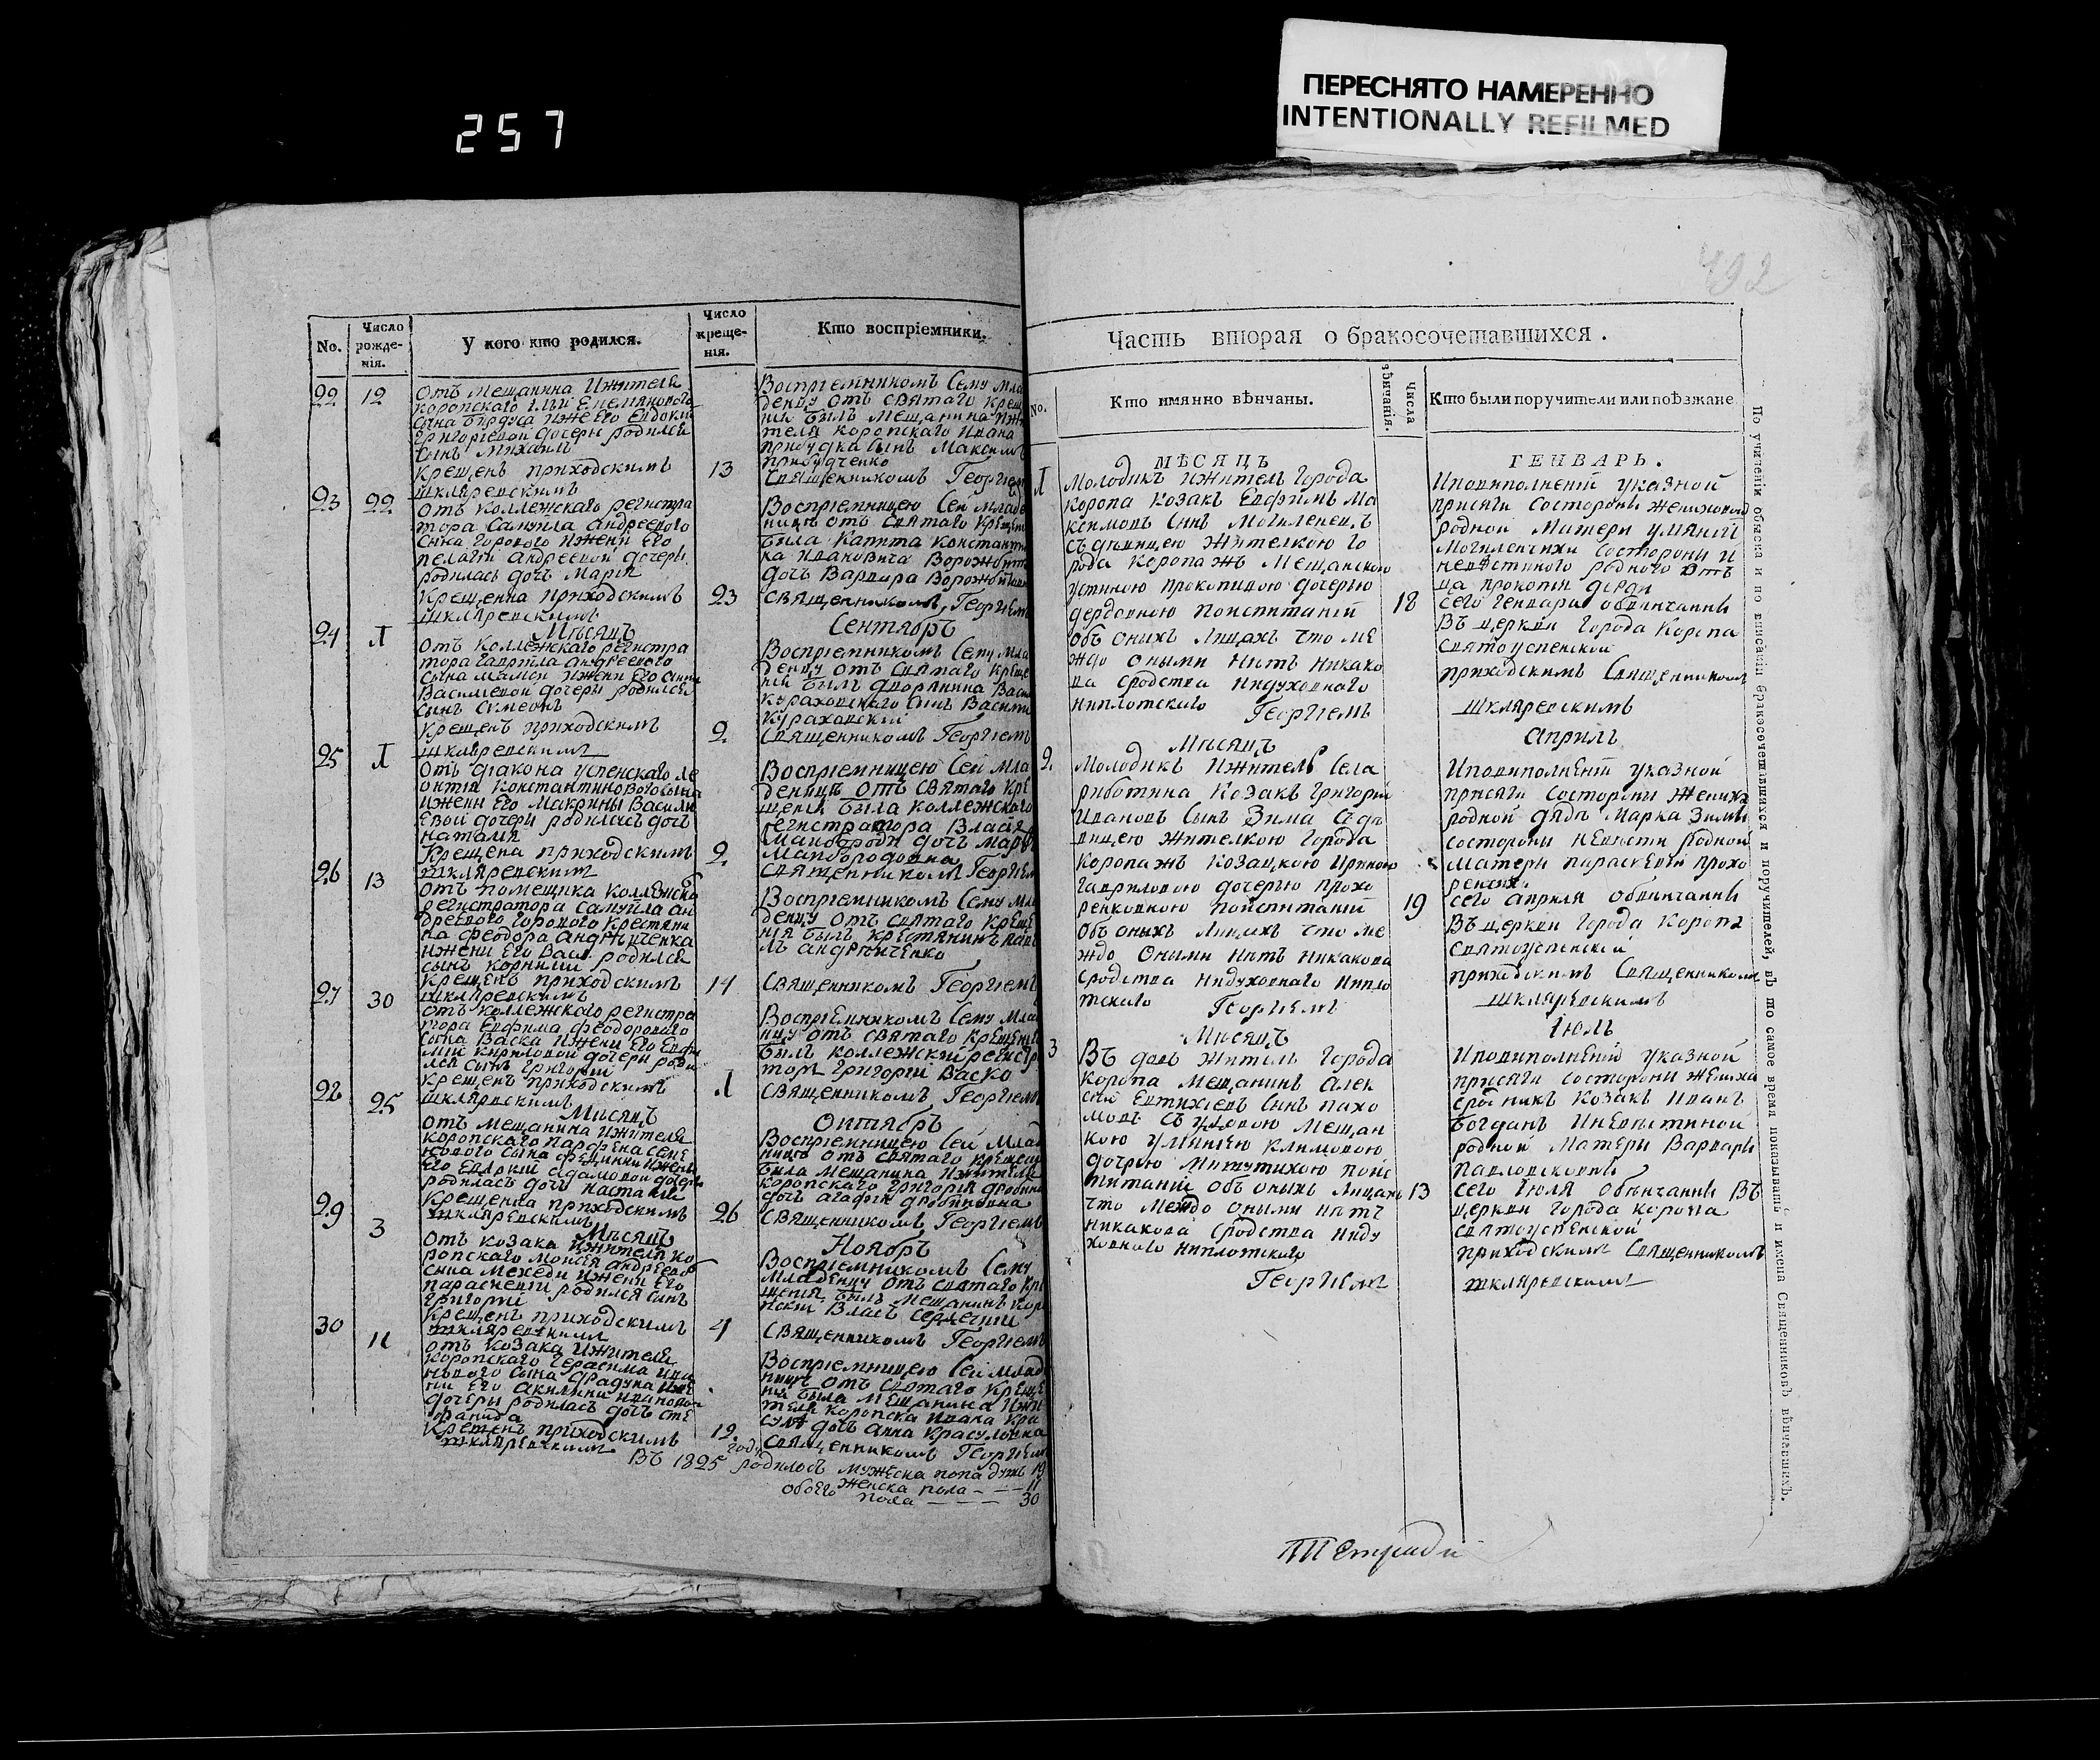 257
ПЕРЕСНЯТО НАМЕРЕННО
INTENTIONALLY REFILMED
492
No.
Число рожде-нія.
У кого кто родился.
Число креще-нія.
Кто воспріемники.
22 12
Отъ мещанина ижителя
коропского Ильи Емельянового
Григориевой дочери родился
сынъ Михаилъ
Крещенъ приходскимъ
шкляревскимъ
13
Воспріемникомъ сему мла
денцу отъ святаго креще
ніи былъ мещанина ижи
теля коропского Ивана
сынъ Максимъ
священникомъ Георгием
23 22
Отъ коллежскаго регистра
тора Самуила Андреевого
сына Горового ижени его
пелагіи Андреевой дочери
родилась дочь Марія
Крещенна приходскимъ
шкляревскимъ
23
Воспріемницею сей младе
ницъ отъ святаго креще
была
ка Ивановича
дочь Варвара
священникомъ, Георгием
Мѣсяцъ
Сентябръ
24 1
Отъ коллежскаго регистра
тора Гаврила Андреевого
сына Мамен ижени его Анны
Василиевой дочери родился
сынъ Симеонъ
Крещенъ приходскимъ
шкляревскимъ
2.
Воспріемникомъ сему мла
денцу отъ святаго креще
ніи былъ дворянина Васи
кураховского сынъ Василий
кураховский
священникомъ Георгиемъ
25 1
Отъ діакона успенскаго ле
онтія Константинового сына
ижени его Макрины Васили
евой дочери родилась дочь
наталія
Крещена приходскимъ
шкляревскимъ
2.
Воспріемницею сей мла
деницъ отъ святаго кре
щенія была коллежскаго
регистратора Власія
Майбороди дочь Марія
Майбородовна
священникомъ Георгием
26 13
отъ помещика коллежско
регистратора Самуйла ан
дреевого Горового крестяни
на феодора
ижени его родился
сынъ корнилий
Крещенъ приходскимъ
шкляревскимъ
14
Воспріемникомъ сему мла
денцу отъ святаго креще
нія былъ крестянинъ
священникомъ Георгием
27 30
отъ коллежского регистра
тора Евфима феодорового
сына Васка ижени его
Кириловой дочери роди
лся сынъ Григорий
Крещенъ приходскимъ
шкляревскимъ
1
Воспріемникомъ сему мла
нцу отъ святаго крещені
былъ коллежский регистр
торъ Григорий Васко
священникомъ Георгием
Мѣсяцъ
Октябръ
28 25
отъ мещанина ижителя
коропского парфена семе
нового сына ижени
его Евдокии Адамовой дочери
родилась дочь Настасия
Крещенна приходскимъ
шкляревскимъ
26
Воспріемницею сей млад
ницъ отъ святаго крещени
была мещанина ижителя
коропского Григория
дочь Агафия
священникомъ Георгием
Мѣсяцъ
Ноябръ
29 3
отъ козака ижителя ко
ропскаго Моисея Андреево
сына Мехеди ижени его
параскевии родился сынъ
Григорий
Крещенъ приходскимъ
шкляревским
4
Воспріемникомъ сему
младенцу отъ святаго кре
щенія былъ мещанинъ кор
пский Власъ Сердечний
священникомъ Георгием
30 11
отъ козака ижителя
коропского Герасима ива
нового сына ижени
ни его акилини ивановой
дочери родилась дочь сте
фанида
Крещенъ приходскимъ
шкляревским
12.
Воспріемницею сей млад
ницъ отъ святаго креще
ній была мещанина ижи
теля коропска Ивана Кра
сули дочь Анна Красуловна
священникомъ Георгием
Въ 1825 году родилось мужеска пола душъ 19
женска пола - - 11
обоего пола - - - 30
Часть вторая о бракосочетавшихся.
No.
Кто имянно вѣнчаны.
Числа вѣнчанія.
Кто были поручители или поѣзжане
МѢСЯЦЪ
ГЕНВАРЬ.
1
Молодикъ ижитель города
коропа козакъ Евфимъ Ма
ксимовъ сынъ Могиленецъ
съ девицею жителкою го
рода коропа жъ мещанскою
устиною прокоповою дочерью
дердовною поиспитаній
объ онихъ лицахъ что ме
ждо оными нетъ никако
ва сродства индуховнаго
ниплотского
Георгиемъ
18
Иповиполненій указной
присяги состороны женихов
родной матери улияній
Могиленчихи состороны и
невестиного родного отъ
ца прокопия дерди
сего генваря обвинчанны
въ церкви города коропа
святоуспенской
приходскимъ священникомъ
шкляревскимъ
Мѣсяцъ
Априлъ
2.
Молодикъ ижитель села
риботина козакъ Григорий
Ивановъ сынъ Зима съ де
вицею жителкою города
коропа жъ козацкою Ириною
Гавриловою дочерью прохо
ренковною поиспитаній
объ оныхъ лицахъ что ме
ждо оними нетъ никакова
сродства индуховнаго нипло
тского
Георгиемъ
19
Иповиполненій указной
присяги состороны жениха
родной дядъ Марка Зимы
состороны невести родной
матери параскевии прохо
ренких.
сего априля обвинчанны
въ церкви города коропа
святоуспенскій
приходскимъ священникомъ
шкляревскимъ
Мѣсяцъ
Іюль
3
Въ довъ житель города
коропа мещанинъ Алек
сей Евтихіевъ сынъ пахо
мовъ съ удовою мещан
кою улияніею климовою
дочерью Митутихою поис
питаній объ онихъ лицахъ
что междо оными нетъ
никакова сродства инду
ховнаго ниплотского
Георгием
13
Иповиполненій указной
присяги состороны жениха
козакъ Иванъ
Богданъ Иневестиной
родной матери Варвары
павловсковны
сего Іюля обвенчанны въ
церкви города коропа
святоуспенской
приходскимъ священникомъ
шкляревским
По учиненіи обыска и по вписаніи бракосочетавшихся и поручителей, въ то самое время показывать и имена Священниковъ вѣнчавшихъ.